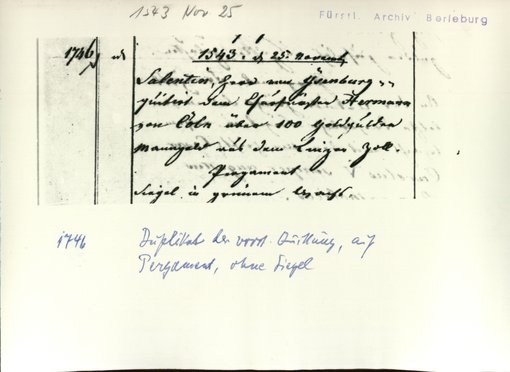 1543 Nov 25
Fürstl. Archiv Berleburg
1746 1543. d. 25. Novemb.
Salentin Herr von Isenburg
quitirt dem Churfürsten Hermann
von Cöln über 100 Goldgulden
Manngeld aus dem Linzer Zoll.
Pergament
Siegel in grünem Wachs.
1746 Duplikat der vorst. Quittung, auf
Pergament, ohne Siegel